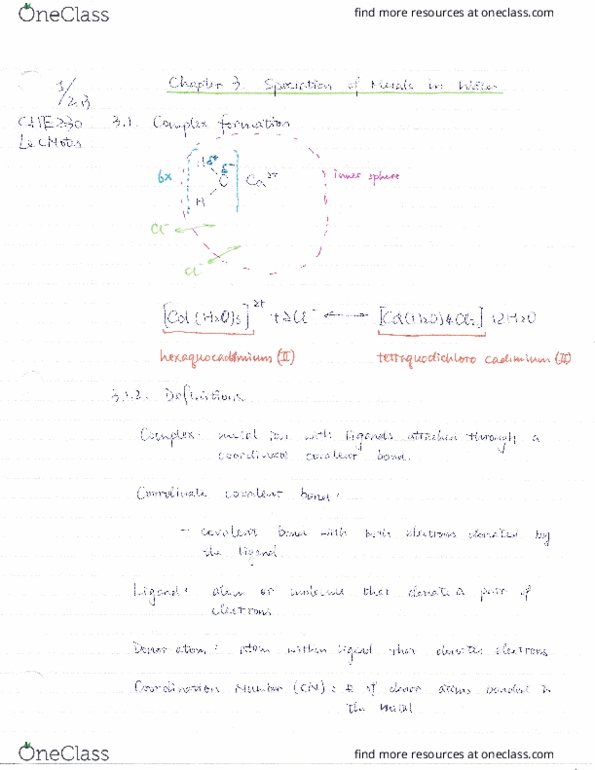 OneClass
find more resources at oneclass.com
Chapter 3 Speciation of Metals in Water
1/23
CHE230
Lec Notes
3.1. Complex formation
6x
H δ+
δ-
H
inner sphere
Cl-
Cl-
[Cd(H2O)6]2+ + 2Cl- ⟷ [Cd(H2O)4Cl2] + 2H2O
hexaquocadmium (II)
tetraquodichloro cadmium (II)
3.1.2. Definitions
Complex: metal ion with ligands attached through a
coordinate covalent bond.
Coordinate covalent bond:
- covalent bond with both electrons donated by
the ligand.
Ligand: atom or molecule that donate a pair of
electrons
Donor atom: atom within ligand that donates electrons
Coordination Number (CN): # of donor atoms bonded to
the metal
OneClass
find more resources at oneclass.com